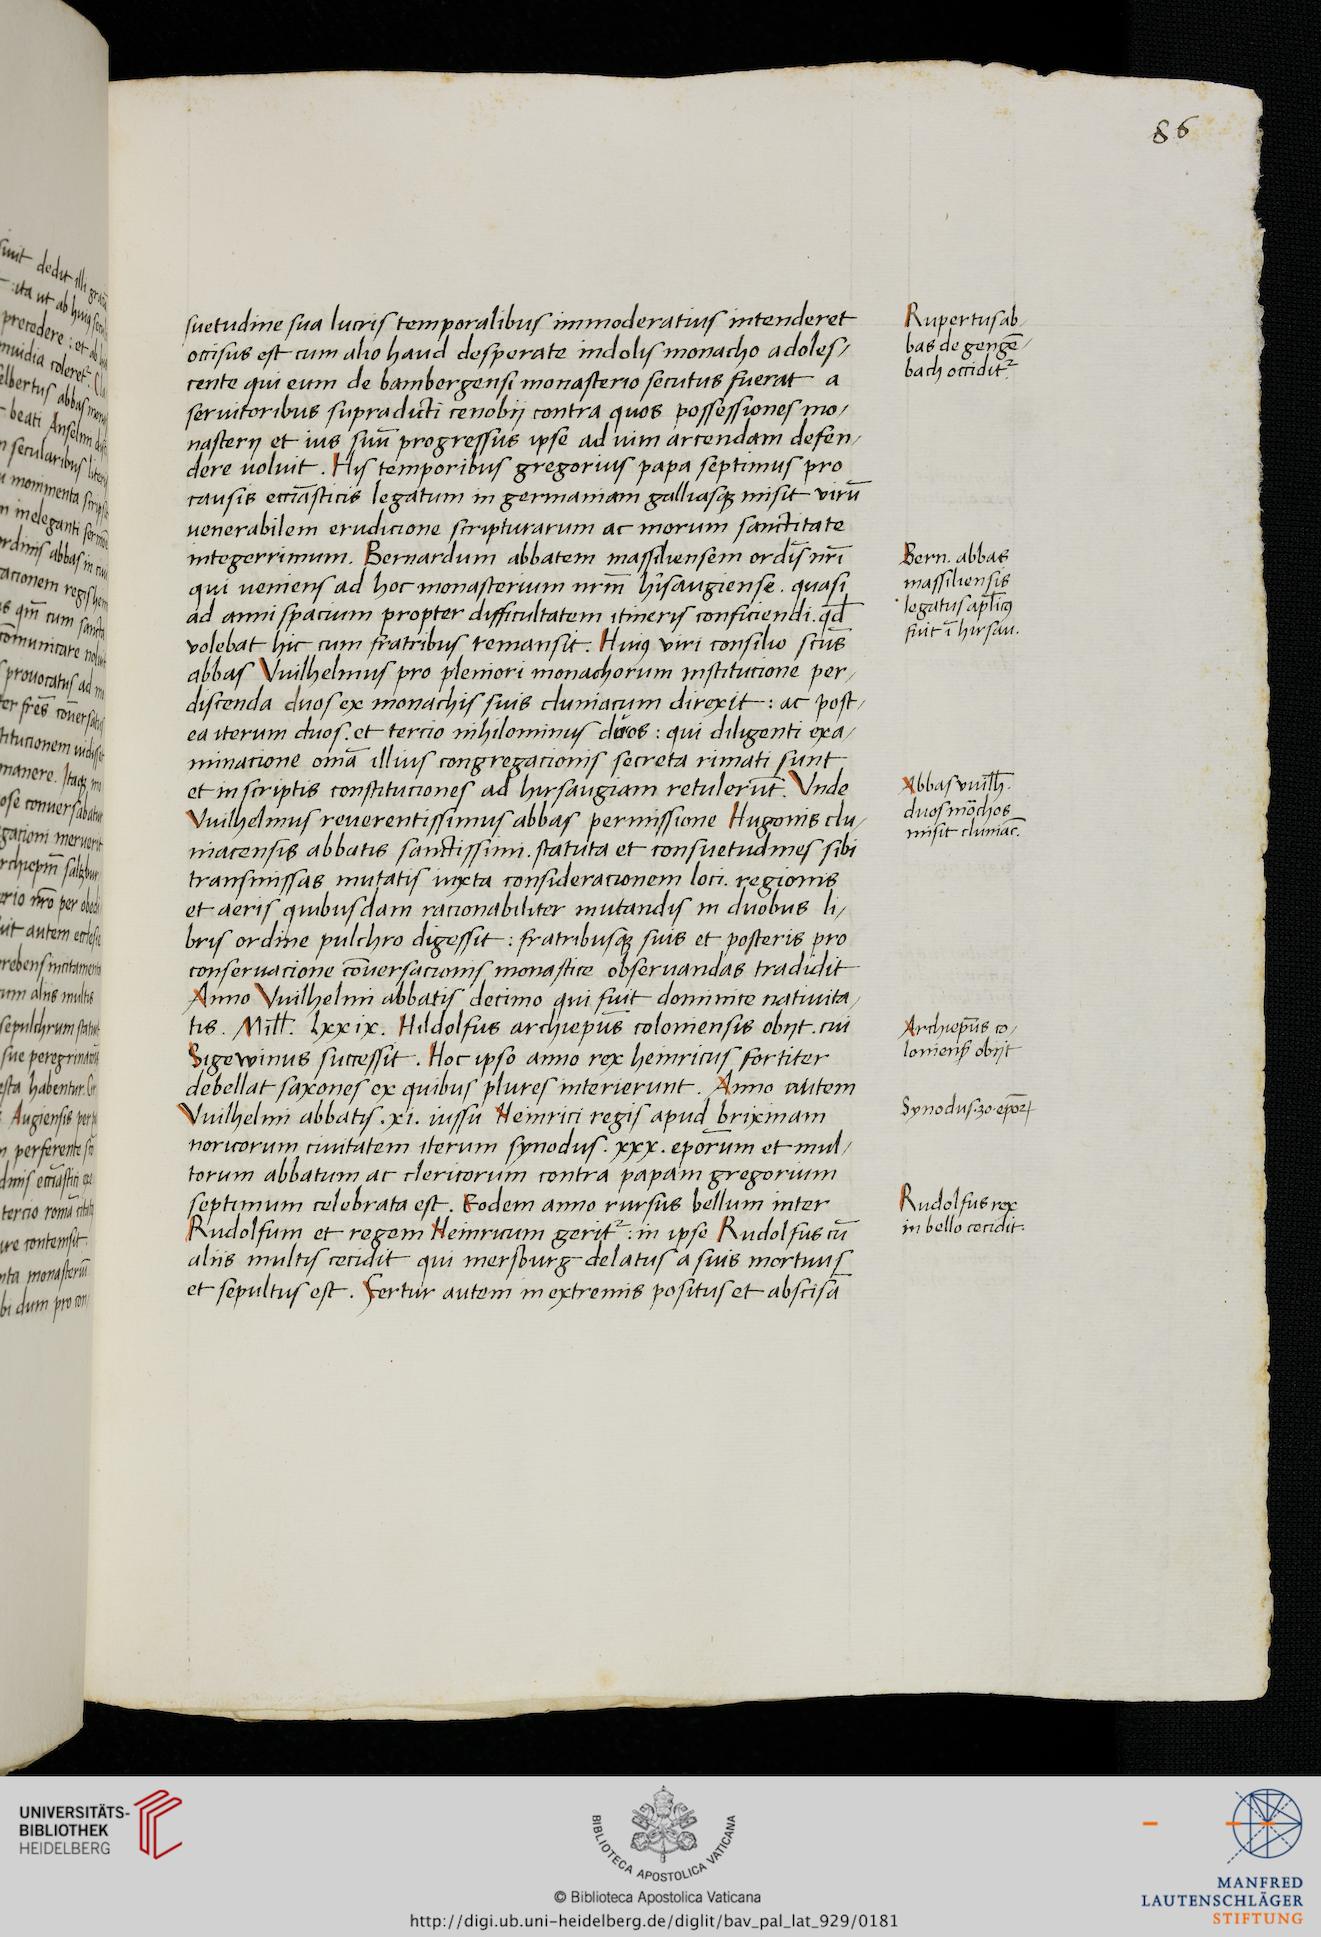 86
suetudine sua lucris temporalibus immoderatius intenderet
occisus est cum alio haud desperate indolis monacho adoles/
cente qui eum de bambergensi monasterio secutus fuerat a
seruitoribus supradicti cenobij contra quos possessiones mo/
nasterij et ius suū progressus ipse ad uim arcendam defen/
dere uoluit . His temporibus gregorius papa septimus pro
causis eccīasticis legatum in germaniam galliasqꝫ misit virū
venerabilem erudicione scripturarum ac morum sanctitate
integerrimum. Bernardum abbatem massiliensem ordīs nr̄i
qui ueniens ad hoc monasterium nrm̄ hirsaugiense . quasi
ad anni spacium propter difficultatem itineris conficiendi. qd̄
volebat hic cum fratribus remansit . Huiꝰ viri consilio scūs
abbas Vuilhelmus pro pleniori monachorum institucione per/
discenda duos ex monachis suis cluniacum direxit : ac post/
ea iterum duos. et tercio nihilominus duos : qui diligenti exa/
minacione omā illius congregacionis secreta rimati sunt
et in scriptis constituciones ad hirsaugiam retulerūt. Vnde
Vuilhelmus reuerentissimus abbas permissione Hugonis clu/
niacensis abbatis sanctissimi . statuta et consuetudines sibi
transmissas mutatis iuxta consideracionem loci . regionis
et aeris quibusdam racionabiliter mutandis in duobus li/
bris ordine pulchro digessit : fratribusqꝫ suis et posteris pro
conseruacione cōuersacionis monastice obseruandas tradidit
Anno Vuilhelmi abbatis decimo qui fuit dominice natiuita/
tis . Mill̄. lxxix. Hildolfus archiepūs coloniensis obijt . cui
Sigewinus successit . Hoc ipso anno rex heinricus fortiter
debellat saxones ex quibus plures interierunt . Anno autem
Vuilhelmi abbatis .xi. iussu Heinrici regis apud brixinam
noricorum ciuitatem iterum synodus . xxx . epōrum et mul/
torum abbatum ac clericorum contra papam gregorium
septimum celebrata est . Eodem anno rursus bellum inter
Rudolfum et regem Heinricum gerit᷑ : in ipse Rudolfus cū
aliis multis cecidit qui mersburg delatus a suis mortuus
et sepultus est . Fertur autem in extremis positus et abscisā
Rupertus ab/
bas de gengē/
bach occidit᷑.
Bern. abbas
massiliensis
legatus apl̄icꝰ
fuit ī hirsau.
Abbas vuilh̄.
duos mōchos
misit cluniac̄.
Archiepūs co/
loniens̄ obijt
Synodus .30. epōꝝ
Rudolfus rex
in bello cecidit.
UNIVERSITÄTS-
BIBLIOTHEK
HEIDELBERG
BIBLIOTECA APOSTOLICA VATICANA
© Biblioteca Apostolica Vaticana
http://digi.ub.uni-heidelberg.de/diglit/bav_pal_lat_929/0181
MANFRED
LAUTENSCHLÄGER
STIFTUNG